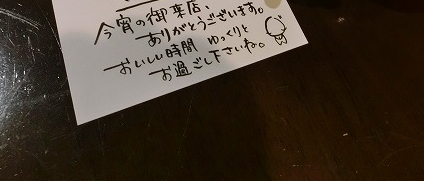 今宵の御来店、
ありがとうございます。
おいしい時間 ゆっくりと
お過ごし下さいね。